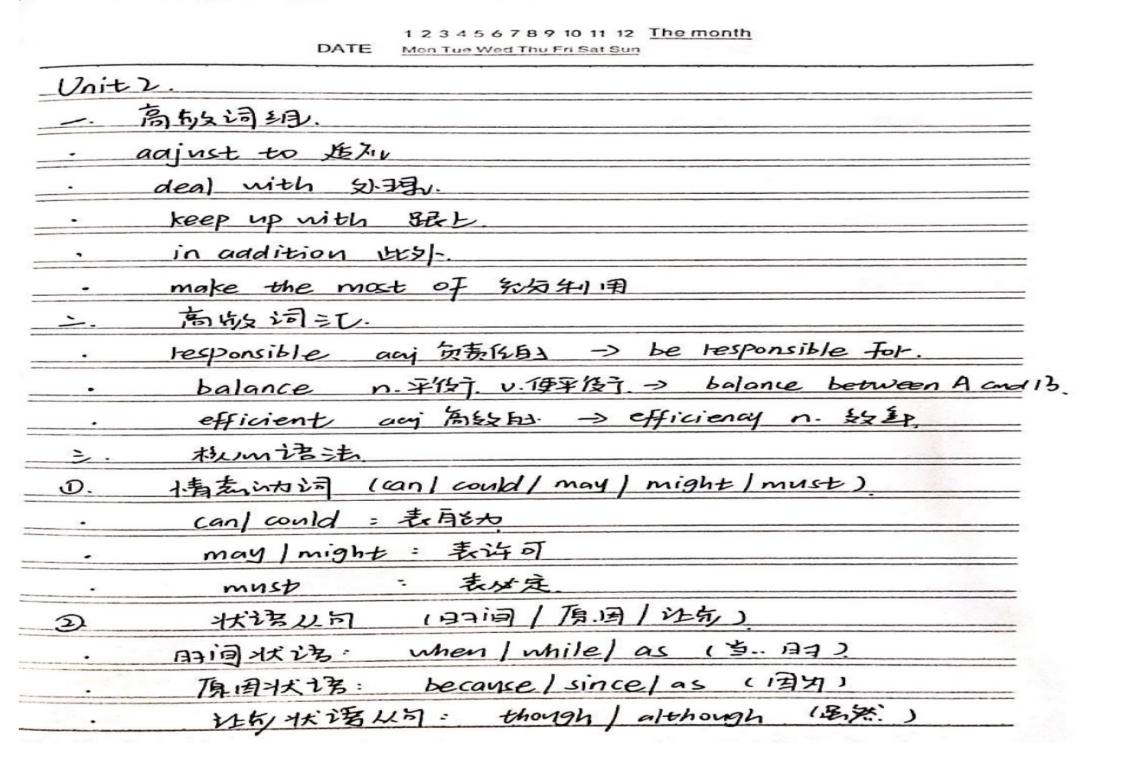 1 2 3 4 5 6 7 8 9 10 11 12 The month
DATE Mon Tue Wed Thu Fri Sat Sun
Unit 2.
一. 高效词组.
· adjust to 适应
· deal with 处理.
· keep up with 跟上.
· in addition 此外.
· make the most of 充分利用
二. 高效词汇.
· responsible adj 负责任的 → be responsible for.
· balance n.平衡. v.使平衡. → balance between A and B.
· efficient adj 高效的. → efficiency n. 效率.
三. 核心语法.
①. 情态动词 (can/ could/ may/ might/must).
· can/ could : 表能力
· may/might : 表许可
· must : 表必定.
② 状语从句 (时间/原因/让步)
· 时间状语: when/while/as (当..时)
· 原因状语: because/since/as (因为)
· 让步状语从句: though/although (虽然)